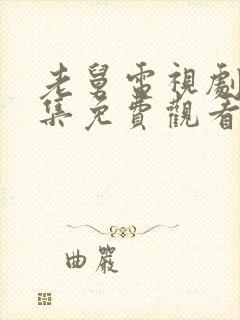 老舅電視劇
集免費觀看
曲嚴